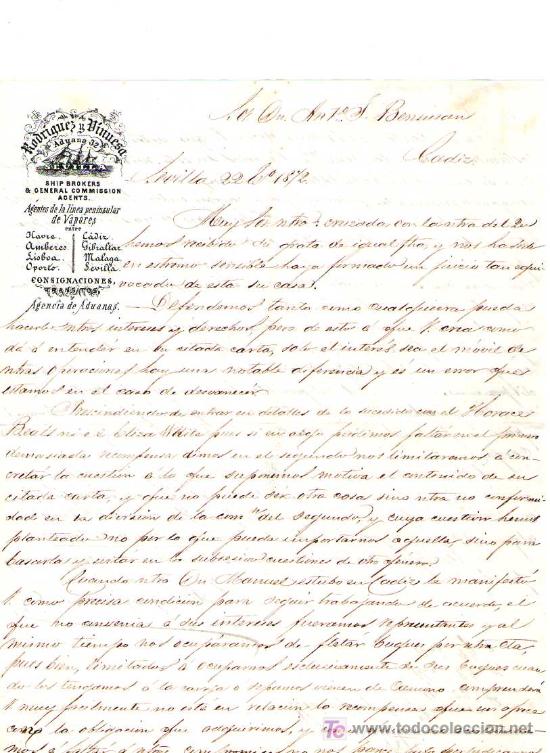 Rodriguez y Vinuesa
Aduana 32
SHIP BROKERS
& GENERAL COMMISSION
AGENTS.
Agentes de la linea peninsular
de Vapores
entre
Havre. Cádiz.
Amberes Gibraltar
Lisboa. Malaga
Oporto. Sevilla
CONSIGNACIONES,
TRANSITOS
y
Agencia de Aduanas.
Sor Dn. Anto. F. Bensusan
Cadiz
Sevilla 22 1872.
Muy Sor ntro: cruzada con la ntra del 20
hemos recibido su grata de igual fha, y nos ha sido
en estremo sensible haya formado un juicio tan equi
vocado de esta su casa.
Defendemos tanto como cualquiera pueda
hacerlo ntros intereses y derechos, pero de esto a que V. crea como
dá á entender en su citada carta, solo el interés sea el móvil de
ntras operaciones hay una notable diferencia y es un error que
estamos en el caso de desvanecer.
Prescindiendo de entrar en detalles de lo sucedido con el Horace
Beals ni el Eliza White pues si en algo pudimos faltar en el primero
demasiada recompensa dimos en el segundo nos limitaremos á con
cretar la cuestion á lo que suponemos motiva el contenido de su
citada carta, y que no puede ser otra cosa sino ntra no conformi
dad en la division de la comon del segundo, y cuya cuestion hemos
planteado no por lo que pueda importarnos aquella, sino para
basarla y evitar en lo subsesivo cuestiones de otro genero.
Cuando ntro Dn. Manuel estubo en Cadiz le manifestó
V. como precisa condicion para seguir trabajando de acuerdo, el
que no
á sus intereses fueramos representantes y al
mismo tiempo nos ocupáramos de fletár buques por ntra cta,
pues bien, limitados á ocuparnos esclusivamente de sus buques cuan
do los tengamos á la carga ó sepamos vienen de camino comprenderá
V. muy facilmente no está en relacion la recompensa que nos ofrece
con la obligacion que adquirimos, y